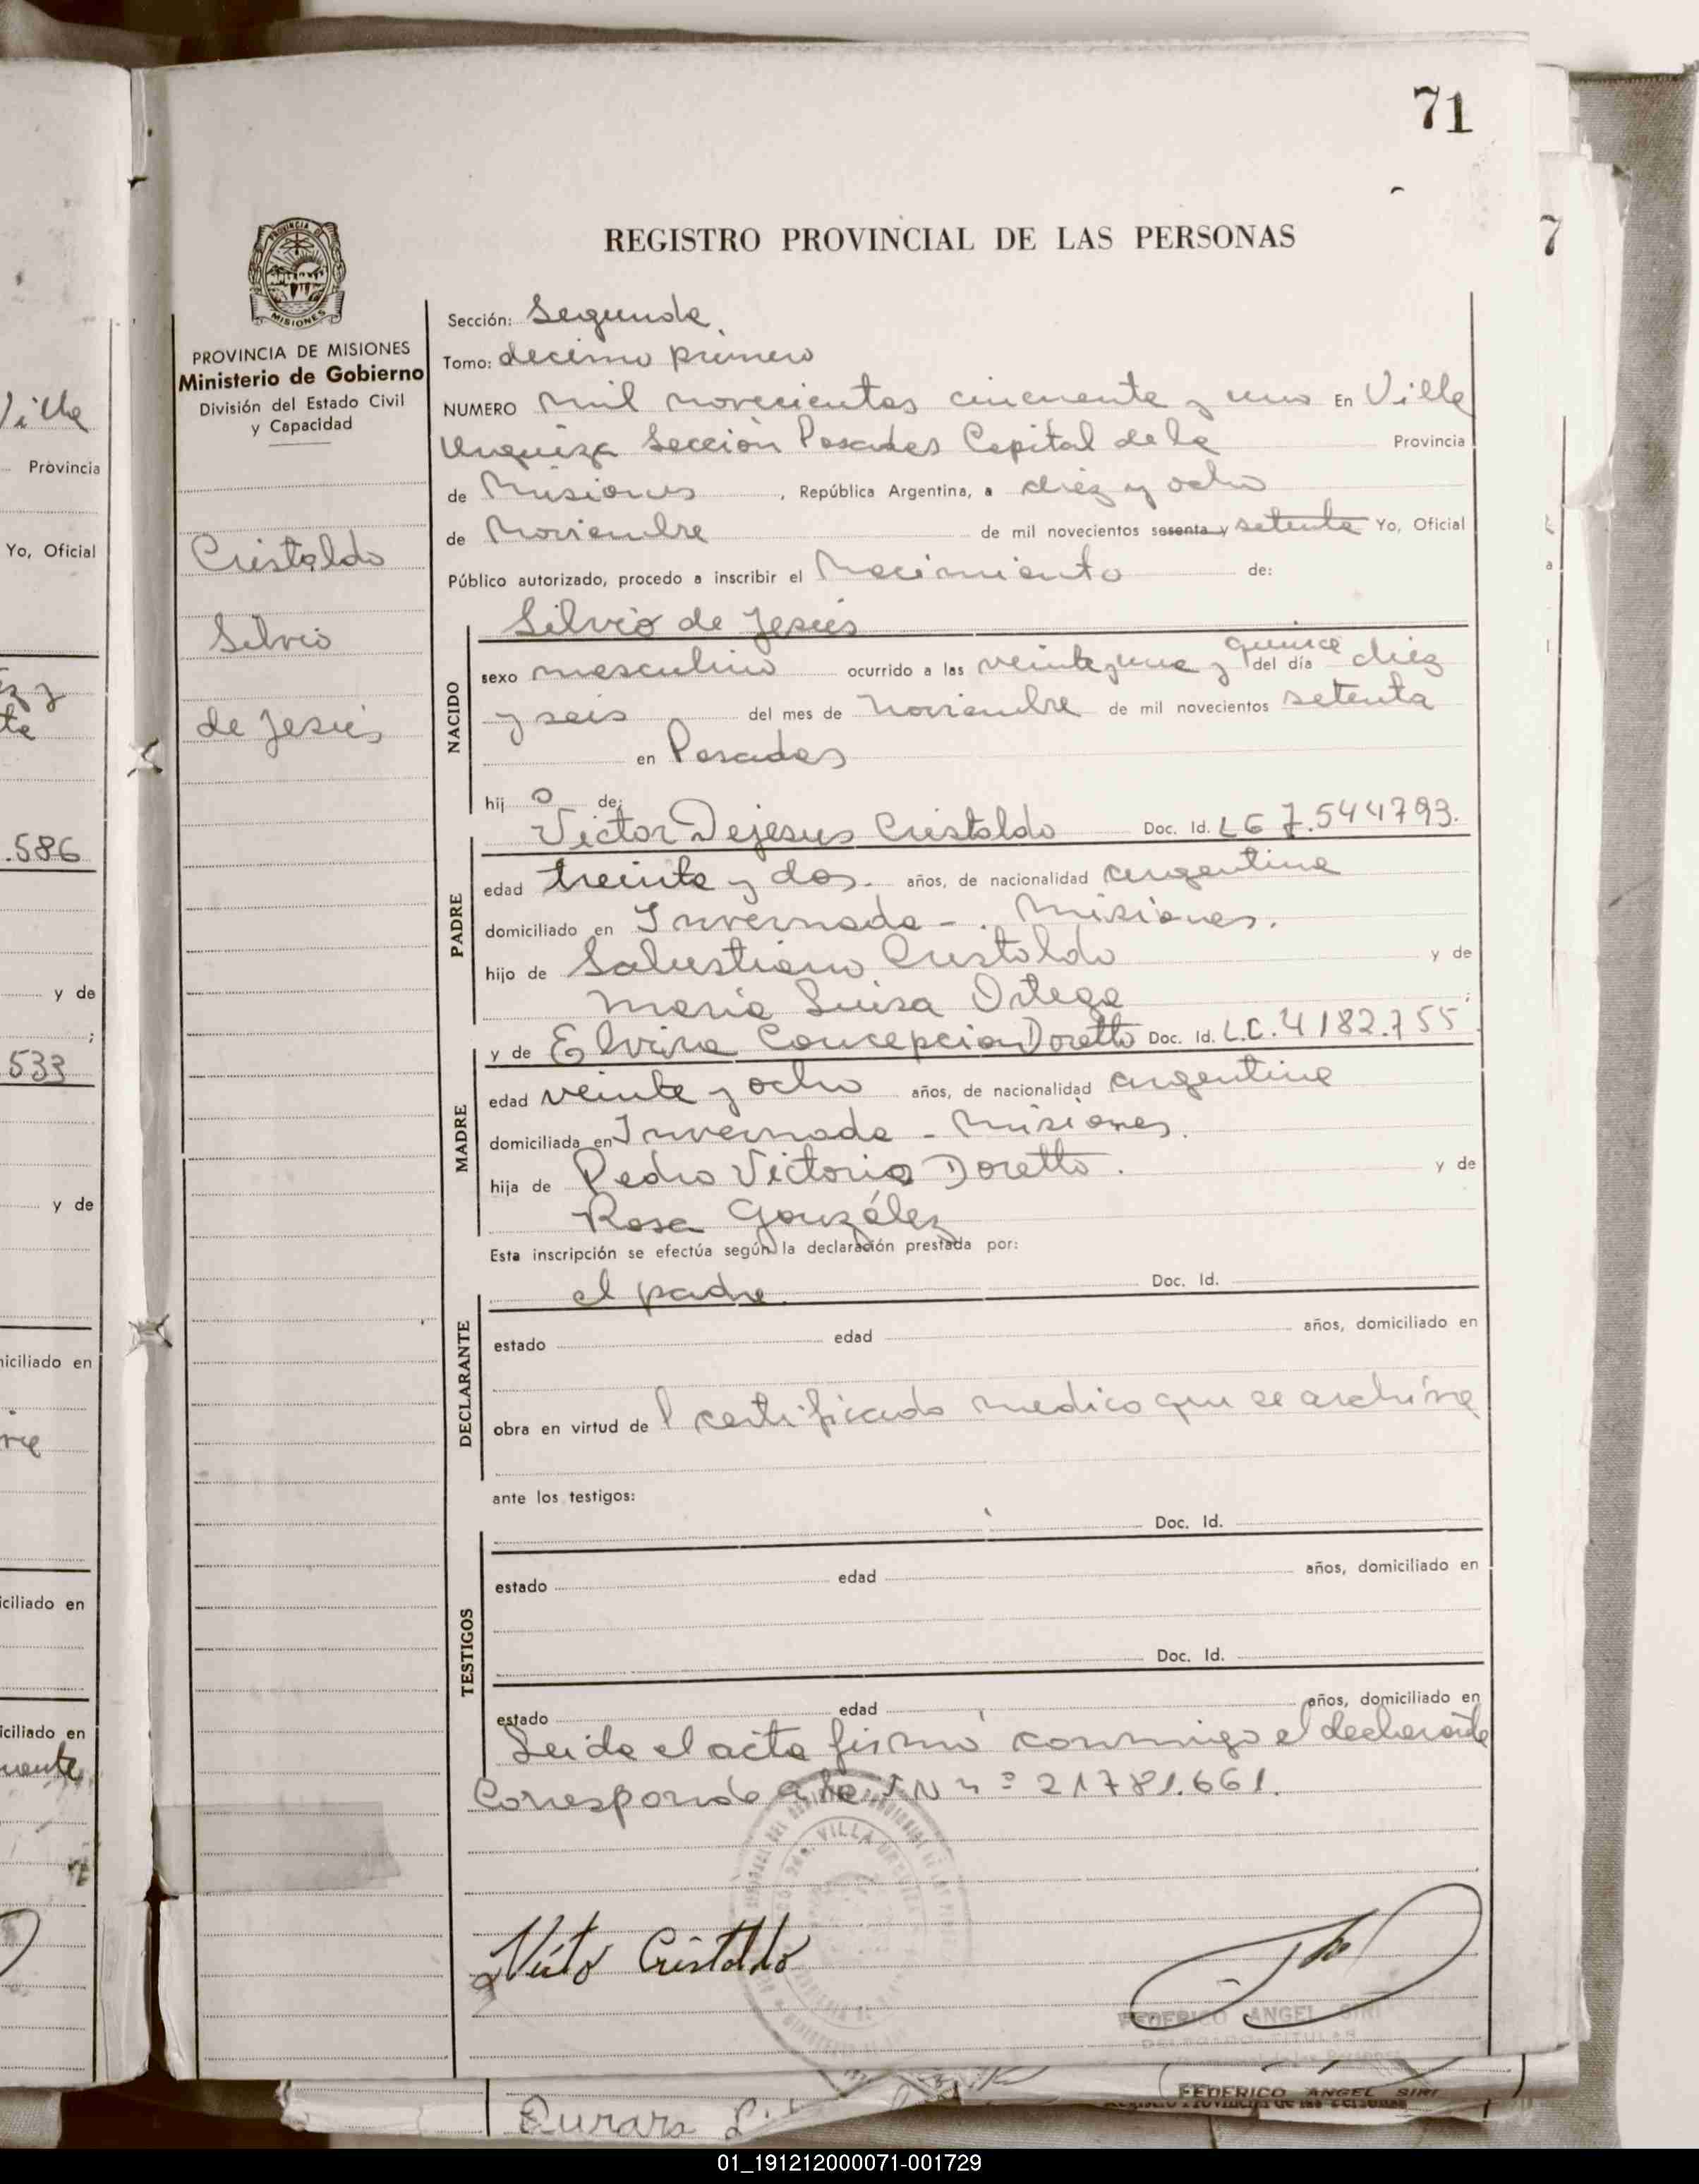 71
REGISTRO PROVINCIAL DE LAS PERSONAS
PROVINCIA DE
MISIONES
PROVINCIA DE MISIONES
Ministerio de Gobierno
División del Estado Civil
y Capacidad
Cristaldo
Silvio
de Jesús
Sección: Segunda
Tomo: decimo primero
NUMERO mil novecientos cincuenta y uno En Villa
Urquiza Sección Posadas Capital de la Provincia
de Misiones, República Argentina, a diez y ocho
de Noviembre de mil novecientos sesenta y setenta Yo, Oficial
Público autorizado, procedo a inscribir el Nacimiento de:
Silvio de Jesús
NACIDO
quince
sexo masculino ocurrido a las veinte y una y del día diez
y seis del mes de Noviembre de mil novecientos setenta
en Posadas
hij o de:
Victor Dejesus Cristaldo Doc. Id. LE 7.544793.
PADRE
edad treinta y dos. años, de nacionalidad argentina
domiciliado en Invernada - Misiones.
hijo de Salustiano Cristaldo y de
Maria Luisa Ortega
y de Elvira Concepcion Doretto Doc. Id. L.C. 4182.755
MADRE
edad veinte y ocho años, de nacionalidad argentina
domiciliada en Invernada - Misiones.
hija de Pedro Victorio Doretto. y de
Rosa González
Esta inscripción se efectúa según la declaración prestada por:
el padre Doc. Id.
DECLARANTE
estado edad años, domiciliado en
obra en virtud de l certificado medico que se archiva
ante los testigos:
Doc. Id.
TESTIGOS
estado edad años, domiciliado en
Doc. Id.
estado edad años, domiciliado en
Leida el acta firmó conmigo el declarante
Corresponde a la I N nº 21781.661.
VILLA URQUIZA
Cristaldo
FEDERICO ANGEL SIRI
DELEGADO TITULAR
FEDERICO ANGEL SIRI
Registro Provincial de las Personas
Ville
Provincia
Yo, Oficial
.586
y de
;
533
y de
iciliado en
iciliado en
iciliado en
7
01_191212000071-001729